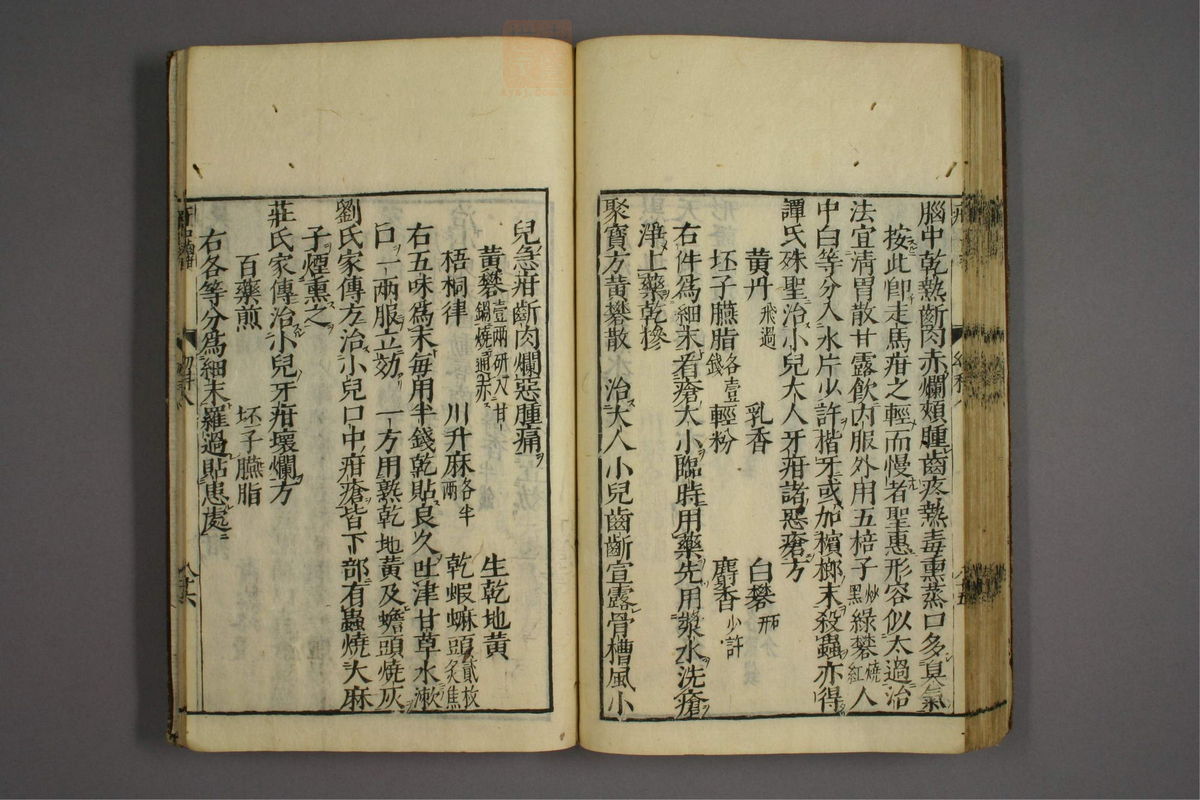 腦中乾熱齗肉赤爛頰腫齒疼熱毒熏蒸口多臭氣
按此卽走馬疳之輕而慢者聖惠形容似太過治
法宜清胃散甘露飲內服外用五棓子炒黑綠礬燒紅人
中白等分入氷片少許揩牙或加檳榔末殺蟲亦得
譚氏殊聖治小兒大人牙疳諸惡瘡方
黄丹飛過 乳香 白礬
坯子臙脂各壹錢 輕粉 麝香少許
右件爲細末看瘡大小臨時用藥先用漿水洗瘡
淨上藥乾摻
聚寶方黄礬散 治大人小兒齒齗宣露骨槽風小
兒急疳齗肉爛惡腫痛
黄礬壹兩研入甘鍋燒通赤 生乾地黄
梧桐律 川升麻各半兩 乾蝦蟆頭貳枚炙焦
右五味爲末每用半錢乾貼良久吐津甘草水漱
口一兩服立効 一方用熟乾地黄及蟾頭燒灰
劉氏家傳方治小兒口中疳瘡皆下部有蟲燒大麻
子煙熏之
莊氏家傳治小兒牙疳壞爛方
百藥煎 坯子臙脂
右各等分爲細末羅過貼患處